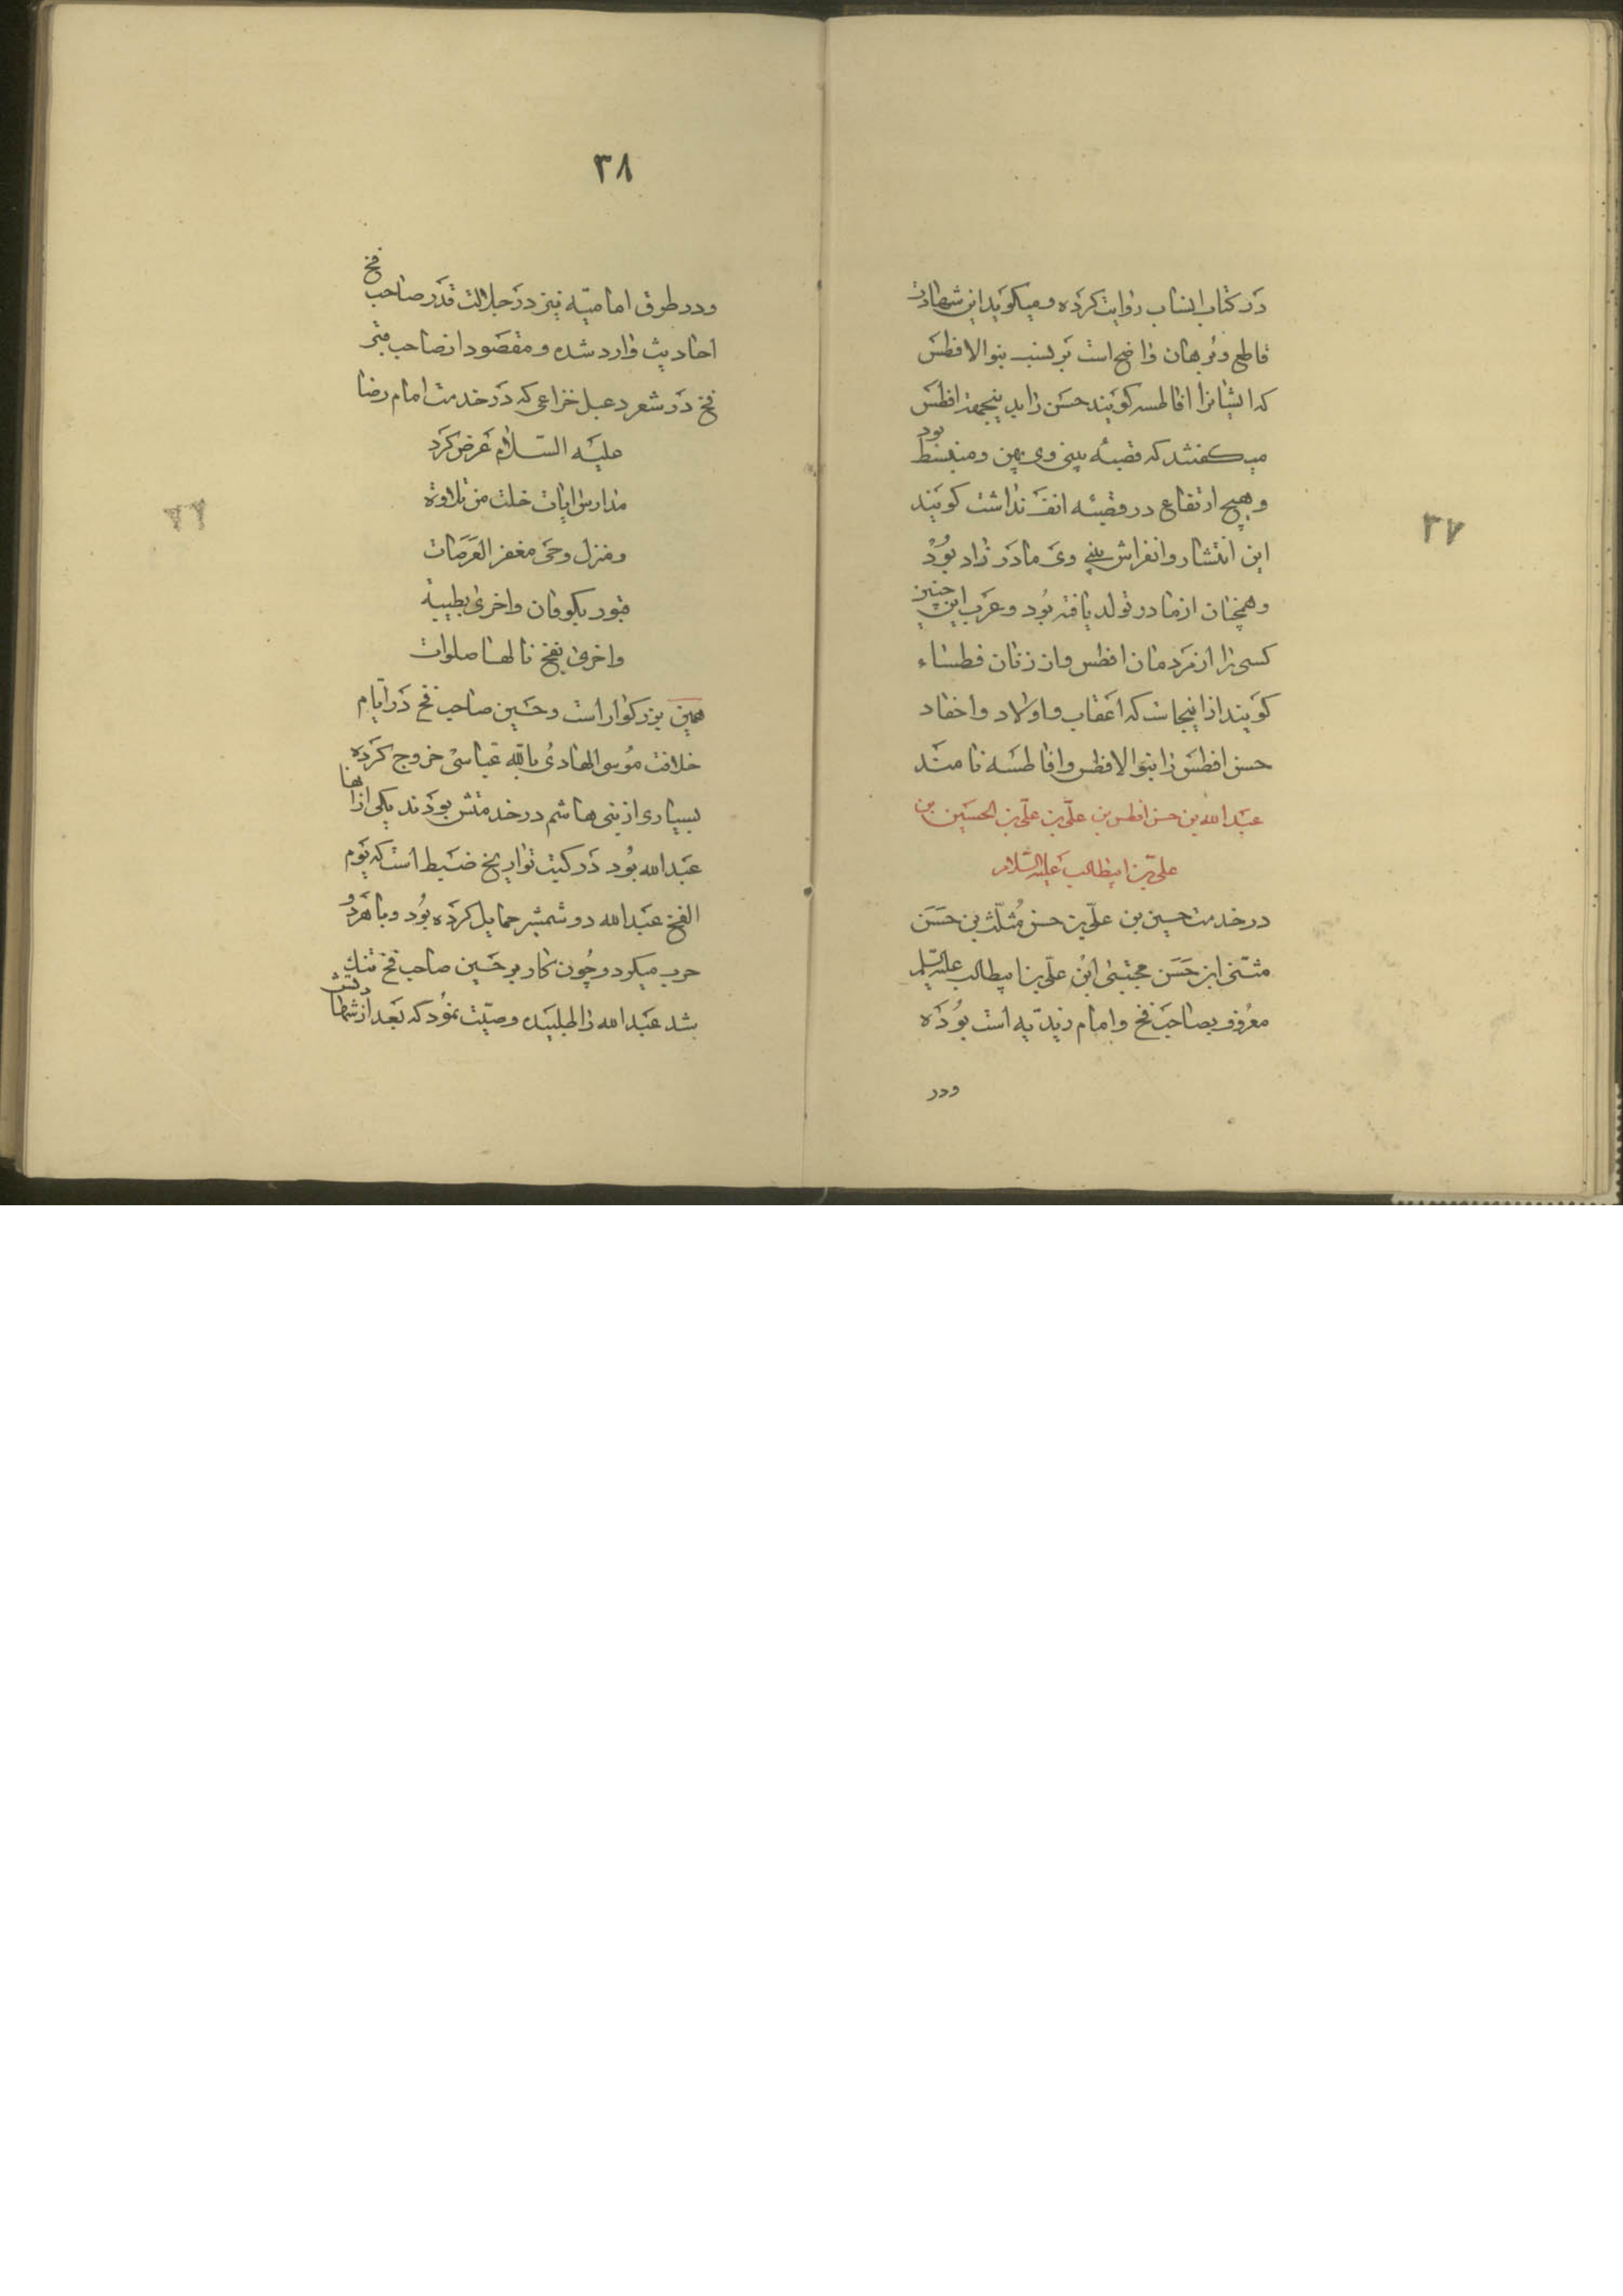 در کتاب انساب روایت کرده و میکوید این شهادت
قاطع و برهان واضح است بر نسب بنوالافطس
که ایشانرا افاطسه کویند حسن را بدینجهة افطس
میکفتند که قصبهٔ بینی وی پهن و منبسط بود
و هیچ ارتقاع در قصبه انف نداشت کویند
این انتشار وانفراش بینی وی مادر زاد بود
و همچنان از مادر تولد یافته بود و عرب این چنین
کسی را از مردمان افطس و از زنان فطساء
کویند از اینجاست که اعقاب و اولاد و احفاد
حسن افطس را بنوالافطس و افاطسه نامند
عبدالله بن حسن افطس بن علی بن علی بن الحسین بن
علی بن ابیطالب علیه السلام
در خدمت حسین بن علی بن حسن مثلث بن حسن
مثنی ابن حسن مجتبی ابن علی بن ابیطالب علیه السلم
معروف بصاحب فخ و امام زیدیه است بوده
ودر
٣٧
٣٨
ودر طرق امامیه نیز در جلالت قدر صاحب فخ
احادیث وارد شده و مقصود از صاحب قبر
فخ در شعر دعبل خزاعی که در خدمت امام رضا
علیه السلام عرض کرد
مدارس ایات خلت من تلاوة
ومنزل وحی مقفر العرصات
قبور بکوفان واخری بطیبة
واخری بفخ نالها صلوات
همین بزرکوار است و حسین صاحب فخ در ایام
خلافت موسی الهادی بالله عباسی خروج کرده
بسیاری از بنی هاشم در خدمتش بودند یکی ازانها
عبدالله بود در کتب تواریخ ضبط است که یوم
الفخ عبدالله دو شمشیر حمایل کرده بود و با هر دو
حرب میکرد و چون کار بر حسین صاحب فخ تنک
بشد عبدالله را طلبیده وصیت نمود که بعد از شهادتش